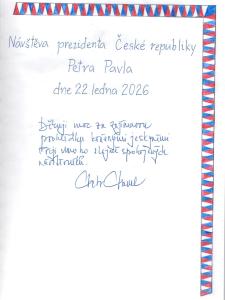 Návštěva prezidenta České republiky
Petra Pavla
dne 22 ledna 2026
Děkuji moc za zajímavou
prohlídku krásnými jeskyněmi
Přeji mnoho dalších spokojených
návštěvníků.